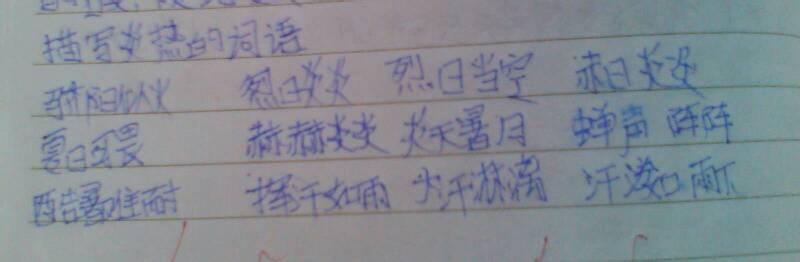 描写炎热的词语
骄阳似火 烈日炎炎 烈日当空 赤日炎炎
夏日可畏 赫赫炎炎 炎天暑月 蝉声阵阵
酷暑难耐 挥汗如雨 大汗淋漓 汗流如雨下